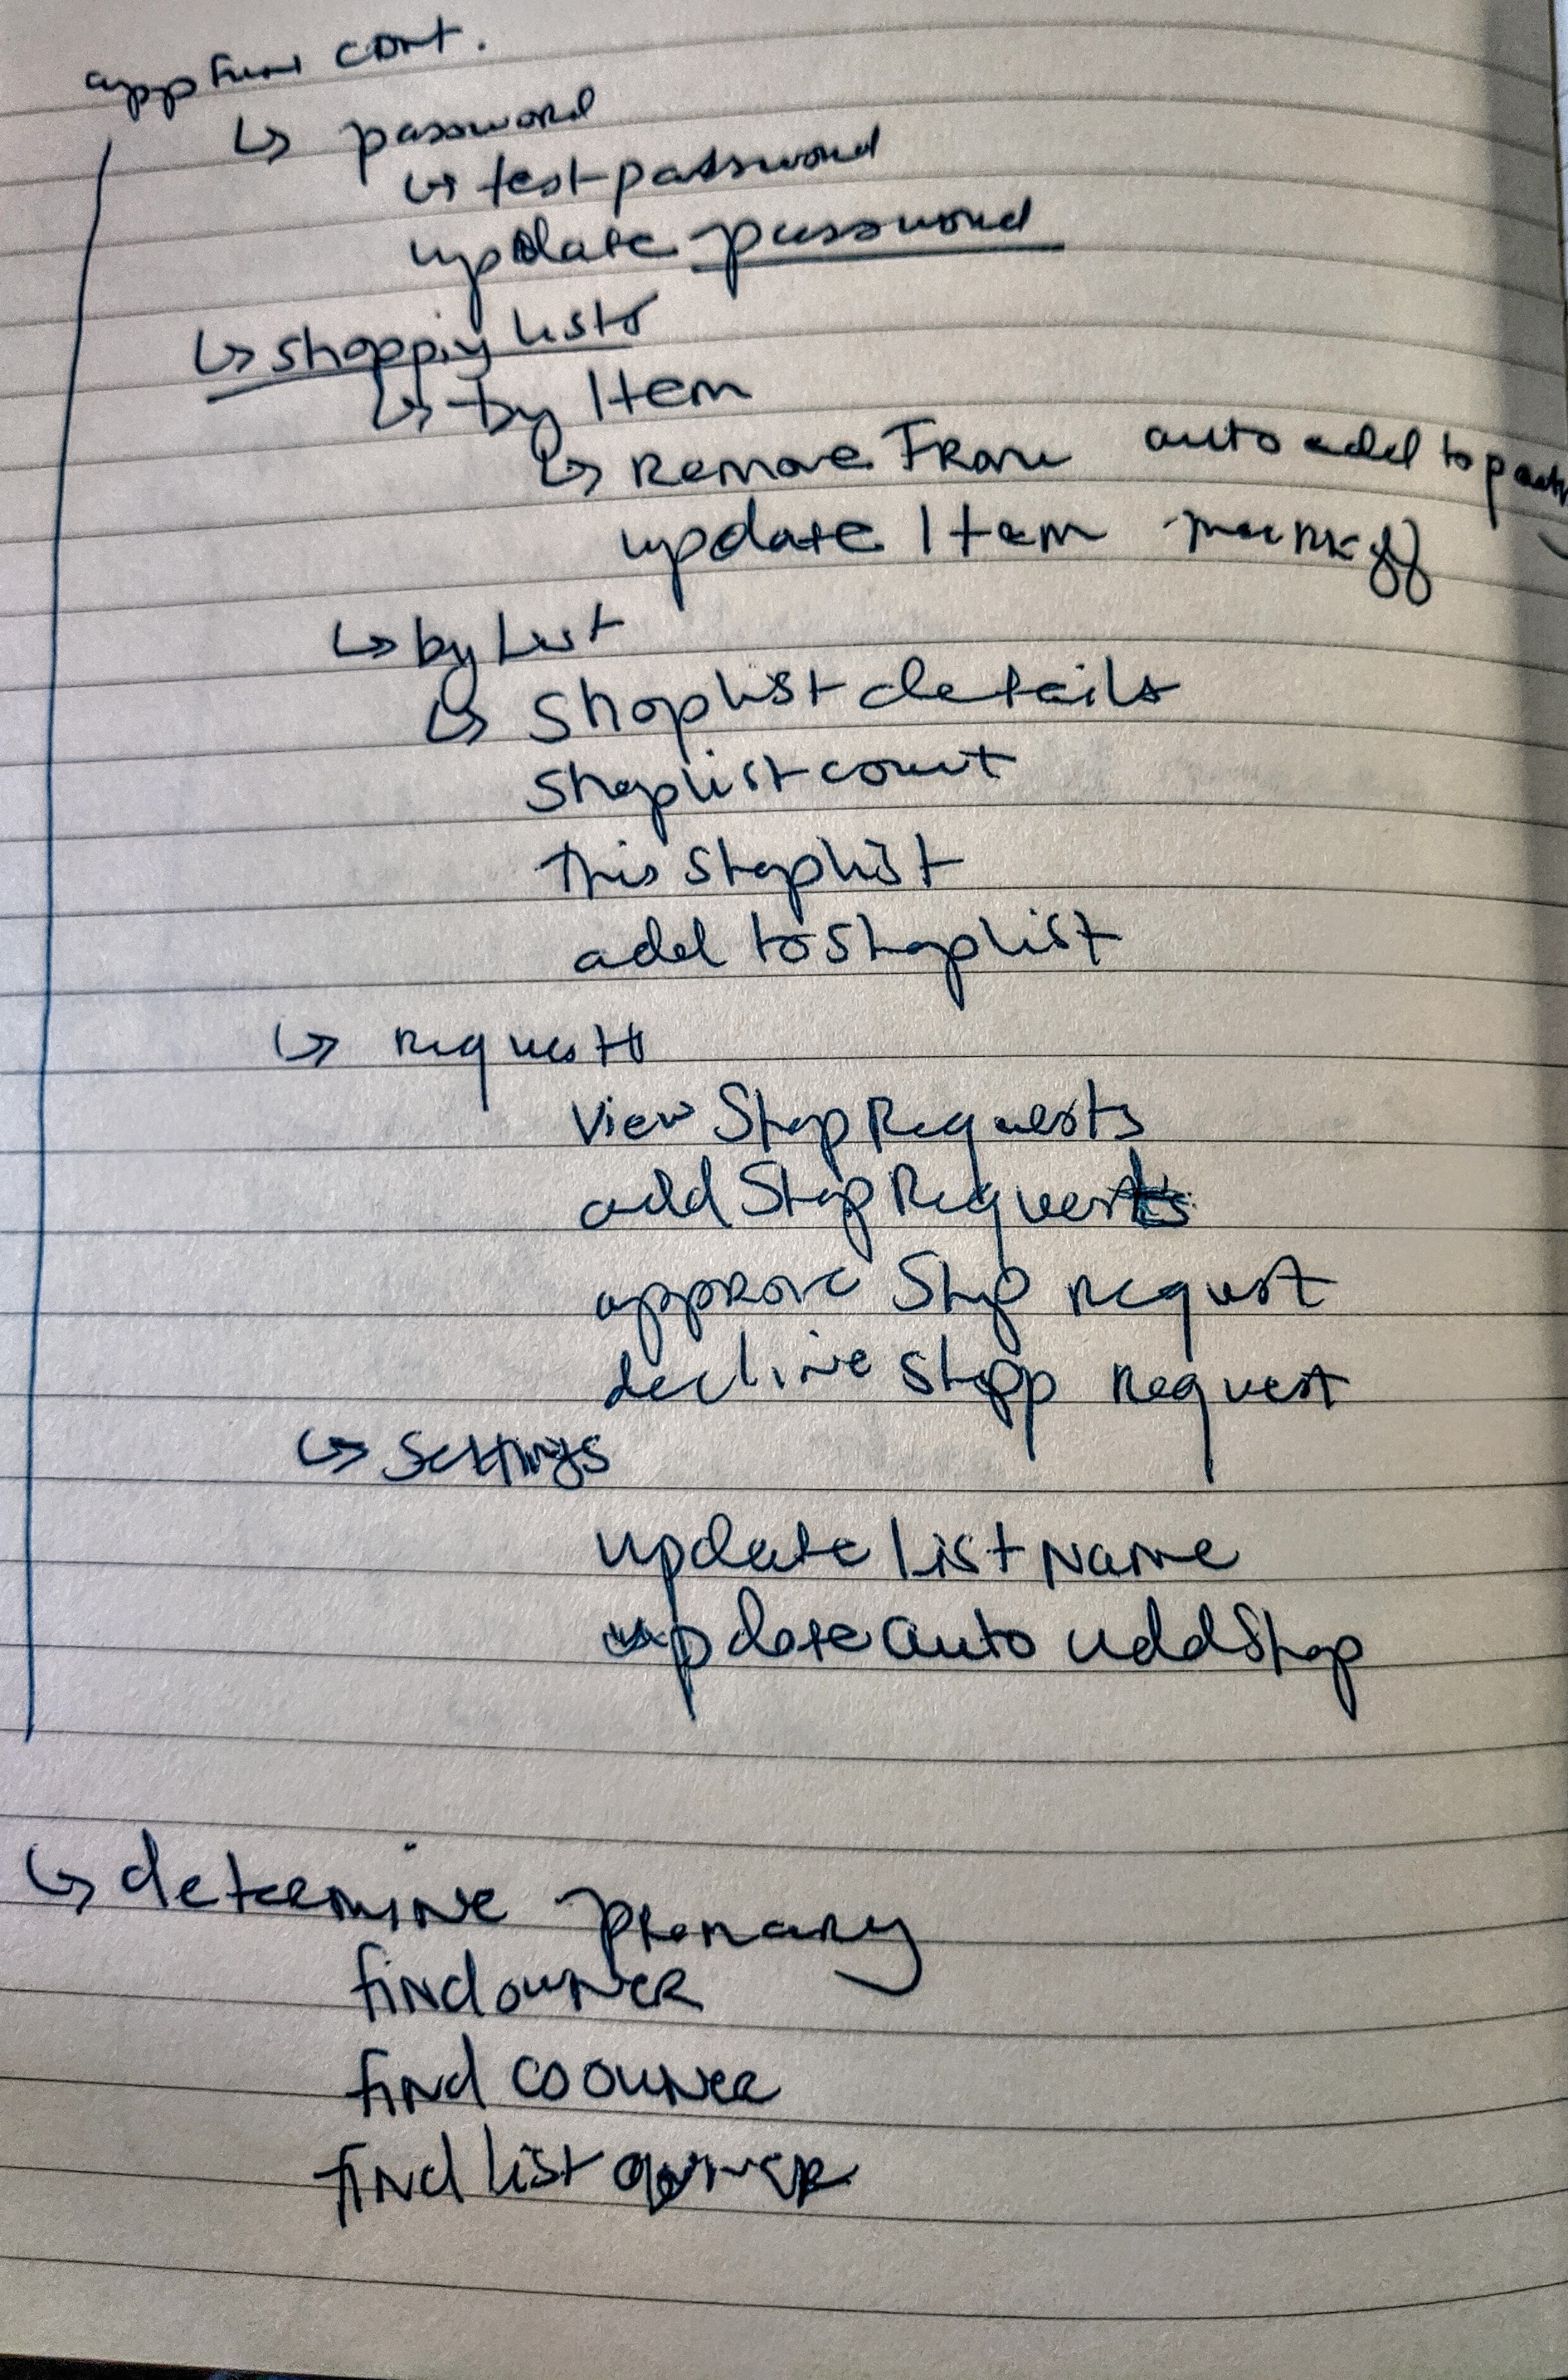 app func cont.
↳ password
↳ test password
update password
↳ shopping lists
↳ by Item
↳ Remove From auto add to
update Item mark off
↳ by List
↳ Shoplist details
Shoplist count
this shoplist
add to shoplist
↳ Requests
View Shop Requests
add Shop Request
approve Shop request
decline shopp request
↳ Settings
update list Name
update auto add Shop
↳ determine primary
find owner
find co owner
find list owner